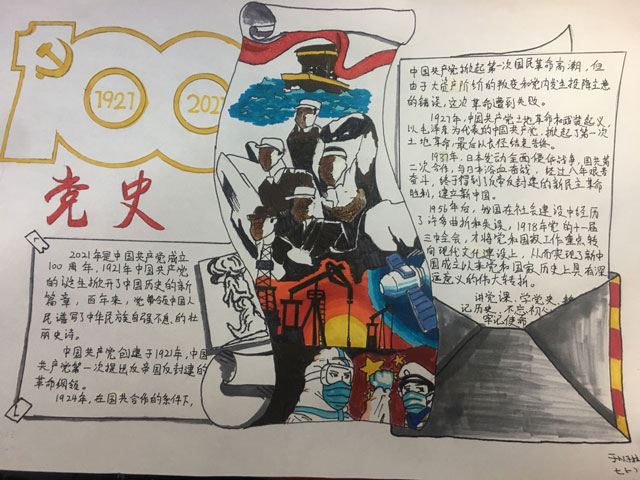 100
1921
2021
党史
2021年是中国共产党成立
100周年,1921年中国共产党
的诞生掀开了中国历史的新
篇章,百年来,党带领中国人
民谱写了中华民族自强不息的壮
丽史诗。
中国共产党创建于1921年,中国
共产党第一次提出反帝国反封建的
革命纲领。
1924年,在国共合作的条件下,
中国共产党掀起第一次国民革命高潮,但
由于大资产阶级的叛变和党内发生投降主意
的错误,这次革命遭到失败。
1927年,中国共产党土地革命和武装起义,
以毛泽东为代表的中国共产党,掀起了第一次
土地革命,最后以长征结束告终。
1937年,日本发动全面侵华战争,国共第
二次合作,与日本浴血奋战,经过八年艰苦
奋斗,终于得到了反帝反封建的新民主革命
胜利,建立新中国。
1956年后,我国在社会建设中经历
了许多曲折和失误,1978年党的十一届
三中全会,才将党和国家工作重点转
向现代文化建设上,从而实现了新中
国成立以来党和国家历史上具有深
远意义的伟大转折。
讲党课,学党史,
记历史,不忘初心
牢记使命